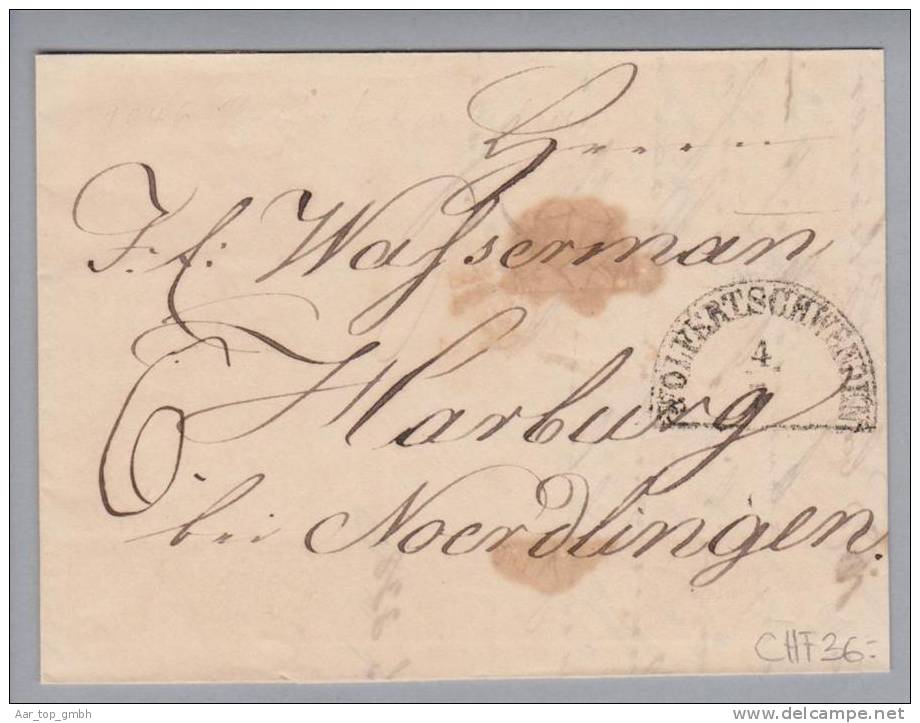 Herrn
F. E: Waßserman
WOLFERTSCHWENDEN
4
6 Harburg
bei Noerdlingen.
CHF 36-
Aar_top_gmbh
www.delcampe.net